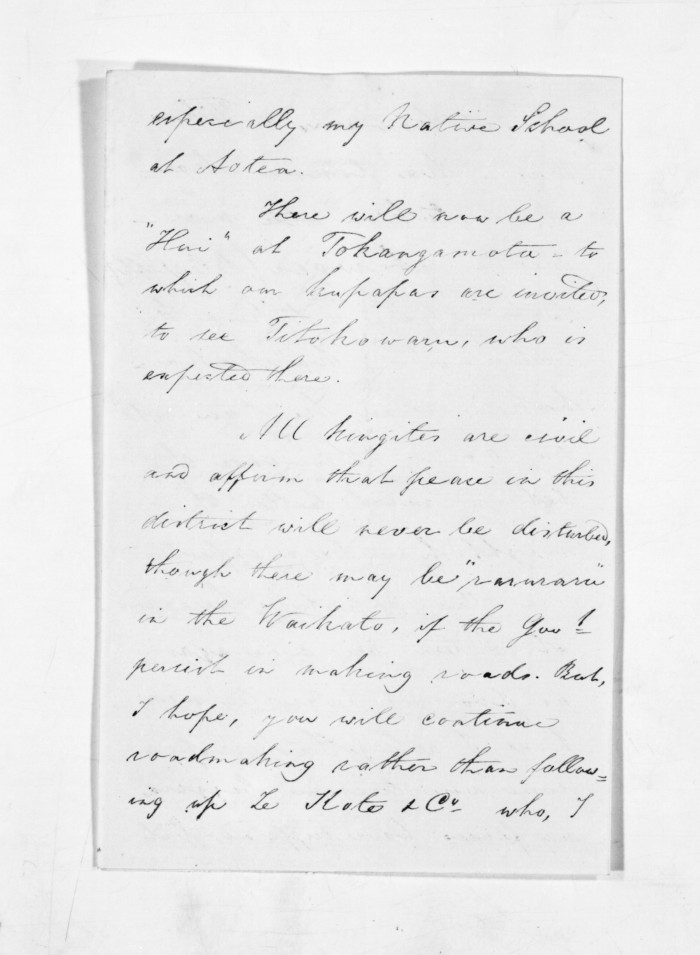 especially my Native School
at Aotea.
There will now be a
"Hui" at Tokangamotu - to
which our kupapas are invited,
to see Titokowaru, who is
expected there.
All kingites are civil
and affirm that peace in this
district will never be disturbed,
though there may be "raruraru"
in the Waikato, if the Govt.
persist in making roads. But,
I hope, you will continue
roadmaking rather than follow=
ing up Te Kote & Co. who, I